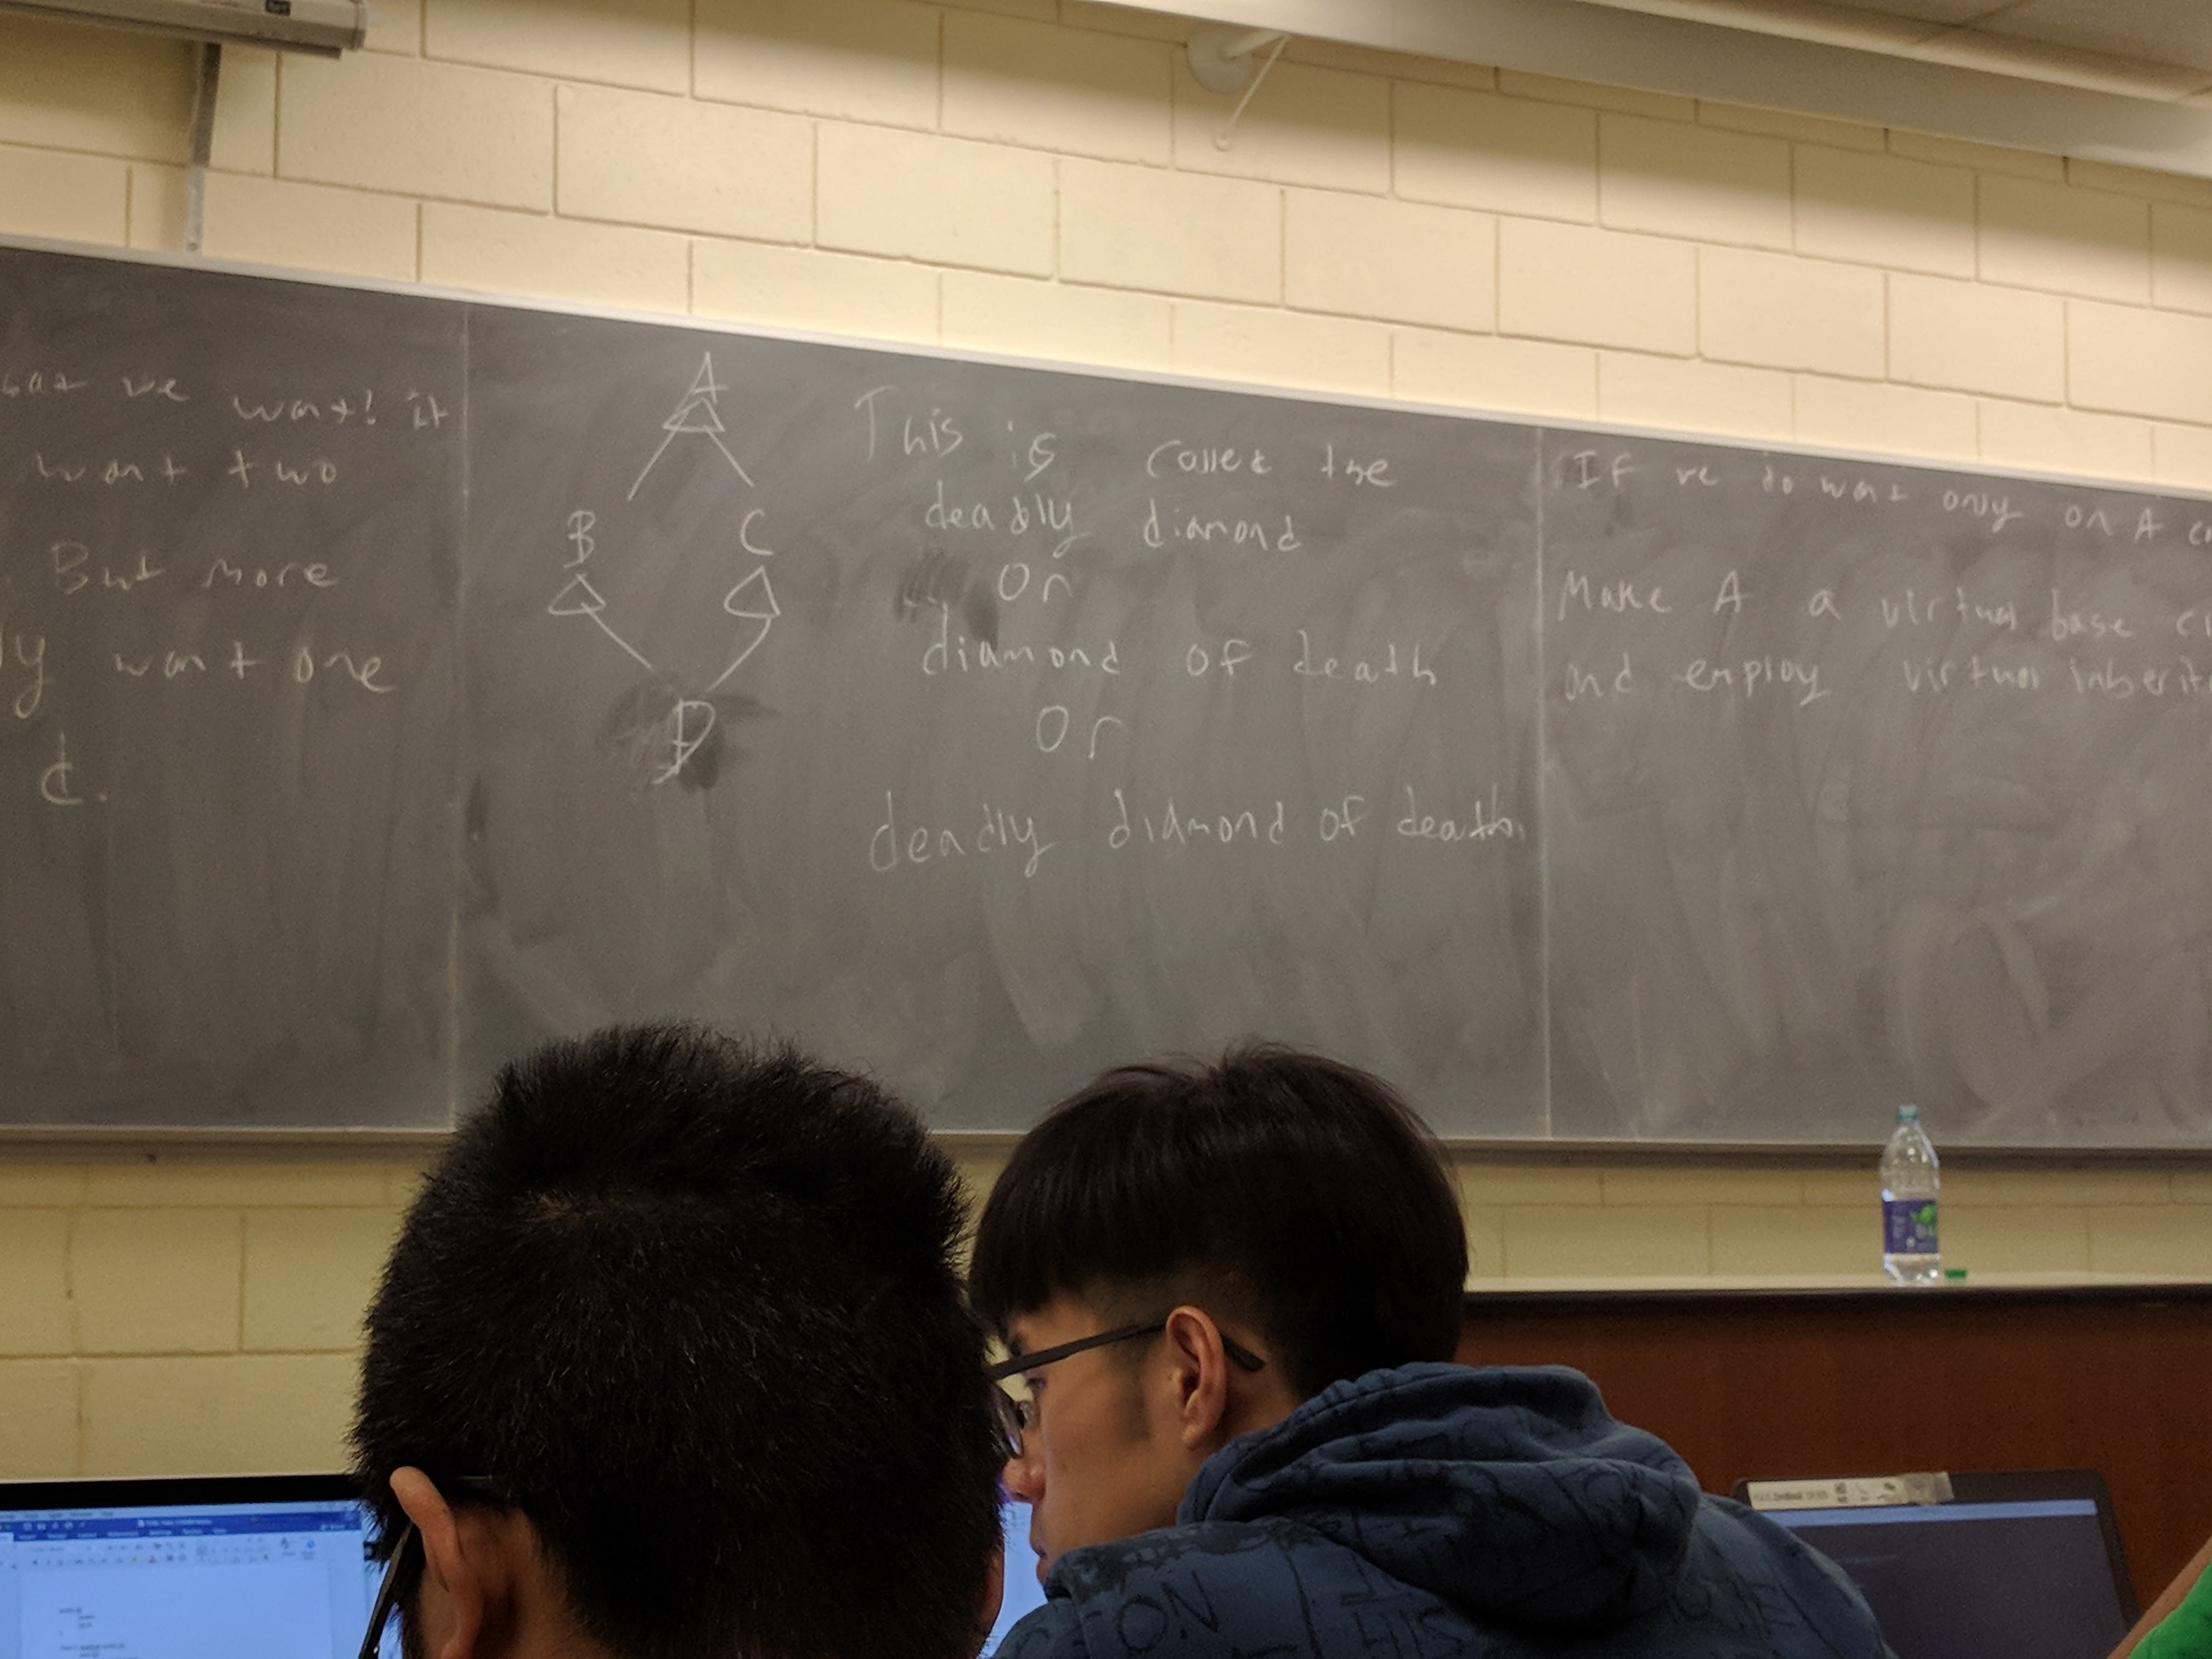 we want! it
want two
But more
want one
d.
A
B C
D
This is called the
deadly diamond
or
diamond of death
or
deadly diamond of death.
If we do want only on A
Make A a virtual base
and employ virtual